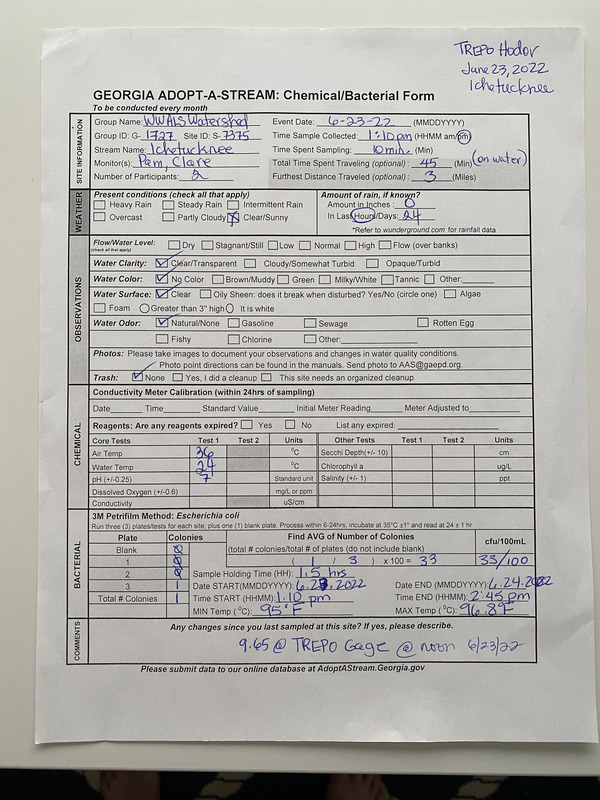 TREPO Hodor
June 23, 2022
Ichetucknee
GEORGIA ADOPT-A-STREAM: Chemical/Bacterial Form
To be conducted every month
SITE INFORMATION
Group Name: WWALS Watershed Event Date: 6-23-22 (MMDDYYYY)
Group ID: G- 1727 Site ID: S- 7375 Time Sample Collected: 1:10pm (HHMM am/pm)
Stream Name: Ichetucknee Time Spent Sampling: 10 min. (Min)
Monitor(s): Pam, Clare Total Time Spent Traveling (optional): 45 (Min) (on water)
Number of Participants: 2 Furthest Distance Traveled (optional): 3 (Miles)
WEATHER
Present conditions (check all that apply) Amount of rain, if known?
Heavy Rain Steady Rain Intermittent Rain Amount in Inches: 0
Overcast Partly Cloudy Clear/Sunny In Last Hours/Days: 24
*Refer to wunderground.com for rainfall data
OBSERVATIONS
Flow/Water Level: Dry Stagnant/Still Low Normal High Flow (over banks)
(check all that apply)
Water Clarity: Clear/Transparent Cloudy/Somewhat Turbid Opaque/Turbid
Water Color: No Color Brown/Muddy Green Milky/White Tannic Other:
Water Surface: Clear Oily Sheen: does it break when disturbed? Yes/No (circle one) Algae
Foam Greater than 3" high It is white
Water Odor: Natural/None Gasoline Sewage Rotten Egg
Fishy Chlorine Other:
Photos: Please take images to document your observations and changes in water quality conditions.
Photo point directions can be found in the manuals. Send photo to AAS@gaepd.org.
Trash: None Yes, I did a cleanup This site needs an organized cleanup
CHEMICAL
Conductivity Meter Calibration (within 24hrs of sampling)
Date Time Standard Value Initial Meter Reading Meter Adjusted to
Reagents: Are any reagents expired? Yes No List any expired:
Core Tests Test 1 Test 2 Units Other Tests Test 1 Test 2 Units
Air Temp 36 °C Secchi Depth(+/- 10) cm
Water Temp 24 °C Chlorophyll a ug/L
pH (+/-0.25) 7 Standard unit Salinity (+/- 1) ppt
Dissolved Oxygen (+/-0.6) mg/L or ppm
Conductivity uS/cm
BACTERIAL
3M Petrifilm Method: Escherichia coli
Run three (3) plates/tests for each site, plus one (1) blank plate. Process within 6-24hrs, incubate at 35°C ±1° and read at 24 ± 1 hr
Plate Colonies Find AVG of Number of Colonies cfu/100mL
Blank 0 (total # colonies/total # of plates (do not include blank)
1 0 ( 1 / 3 ) x 100 = 33 33/100
2 0 Sample Holding Time (HH): 1.5 hrs
3 1 Date START(MMDDYYYY): 6.23.2022 Date END (MMDDYYYY): 6.24.2022
Total # Colonies 1 Time START (HHMM): 1:10 pm Time END (HHMM): 2:45 pm
MIN Temp (°C): 95°F MAX Temp (°C): 96.8°F
COMMENTS
Any changes since you last sampled at this site? If yes, please describe.
9.65 @ TREPO Gage @ noon 6/23/22
Please submit data to our online database at AdoptAStream.Georgia.gov